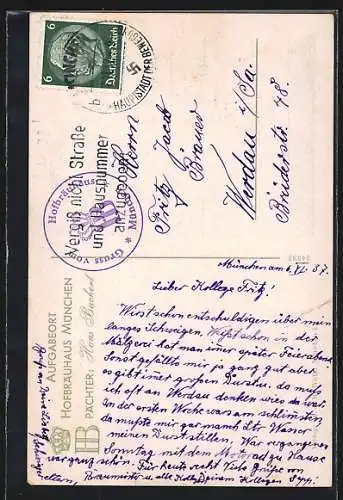 6
6
Deutsches Reich
MÜNCHEN
HAUPTSTADT DER BEWEGUNG
b
Vergiß nicht Straße
und Hausnummer
anzugeben!
Hofbräuhaus
Gruss vom
München
HB
Herrn
Fritz Jacob
Brauer
Werdau i/Sa.
Brüderstr. 48.
AUFGABEORT
HOFBRÄUHAUS MÜNCHEN
PÄCHTER:
HB
München am 6. XI. 37.
Lieber Kollege Fritz!
Wirst schon entschuldigen über mein
langes Schweigen. Weißt schon in der
Mälzerei hat man immer später Feierabend.
Sonst gefällts mir ja ganz gut aber
es gibt immer großen Durst. da muß
ich oft an Werdau denken wies da war.
In der ersten Woche wars am schlimmsten,
da mußte mir gar manch Ltr. Wasser
meinen Durst stillen. War vergangenen
Sonntag mit dem Motorrad zu Hause
war ganz schön. Für heute recht viele Grüße von
Braumeister u. alle Kollegen Sepp.